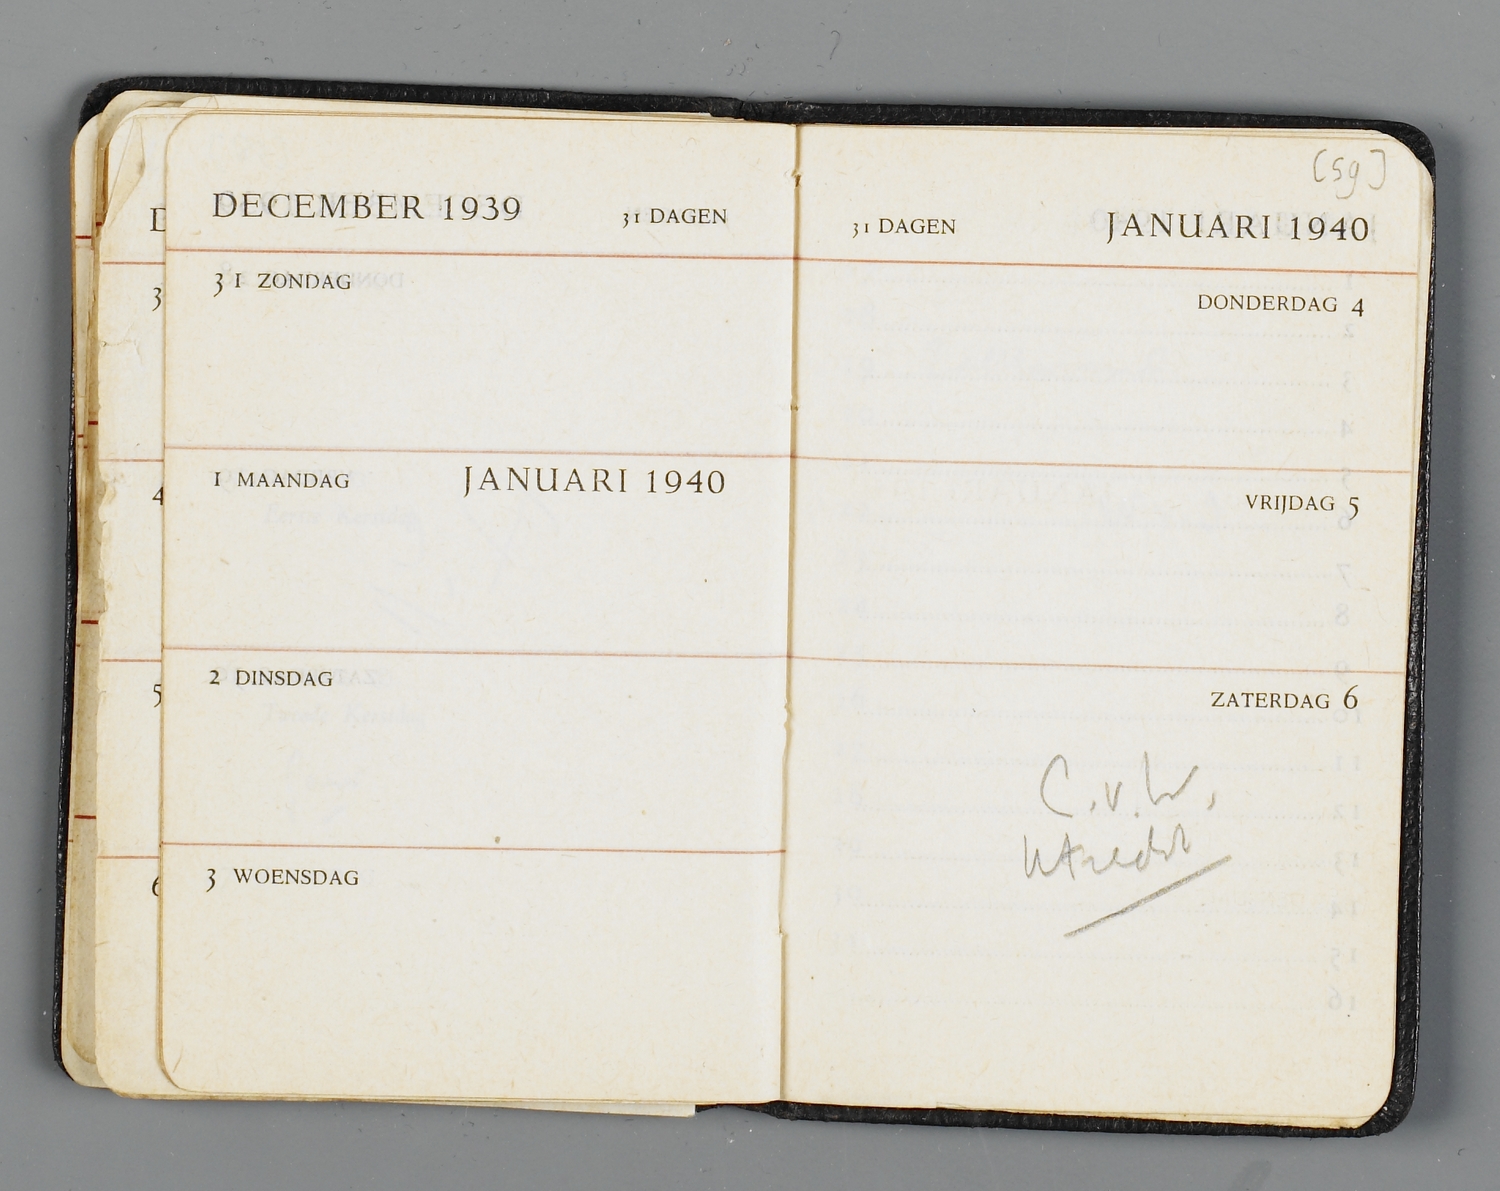 DECEMBER 1939 31 DAGEN
31 ZONDAG
1 MAANDAG JANUARI 1940
2 DINSDAG
3 WOENSDAG
[59]
31 DAGEN JANUARI 1940
DONDERDAG 4
VRIJDAG 5
ZATERDAG 6
C.v.W.
Utrecht
D
3
4
5
6